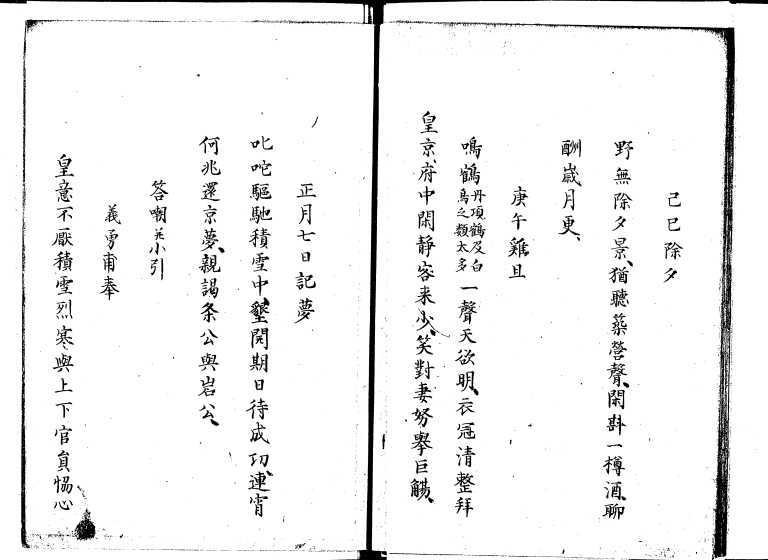 己巳除夕
野無除夕景、猶聽築營聲、閑斟一樽酒、聊
酬歲月更、
庚午雞旦
鳴鶴丹項鶴及白鳥之類太多一聲天欲明、衣冠清整拜
皇京、府中閑靜客来少、笑對妻努擧巨觴、
正月七日記夢
叱咤驅馳積雪中、墾閲期日待成功、連宵
何兆還京夢、親謁条公與岩公、
答嘲并小引
義勇甫奉
皇意不厭積雪烈寒、與上下官貟恊心